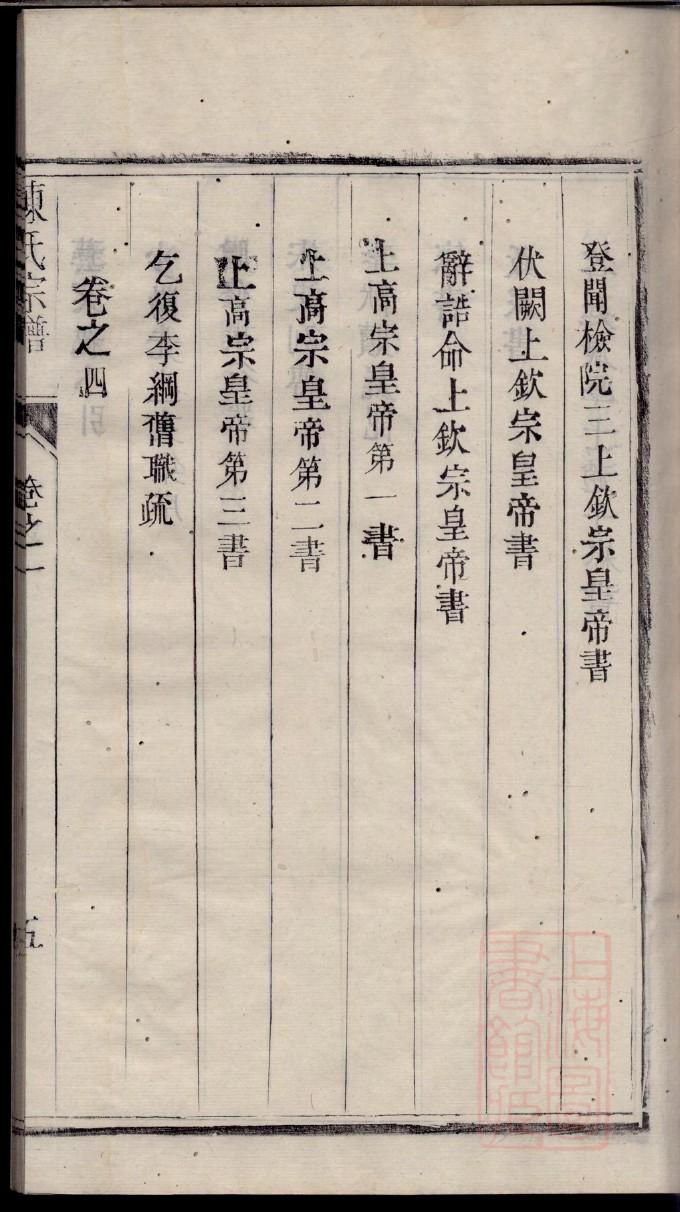 登聞檢院三上欽宗皇帝書
伏闕上欽宗皇帝書
辭誥命上欽宗皇帝書
上高宗皇帝第一書
上高宗皇帝第二書
上高宗皇帝第三書
乞復李綱舊職疏
卷之四
陳氏宗譜
卷之一
五
上海圖書館藏